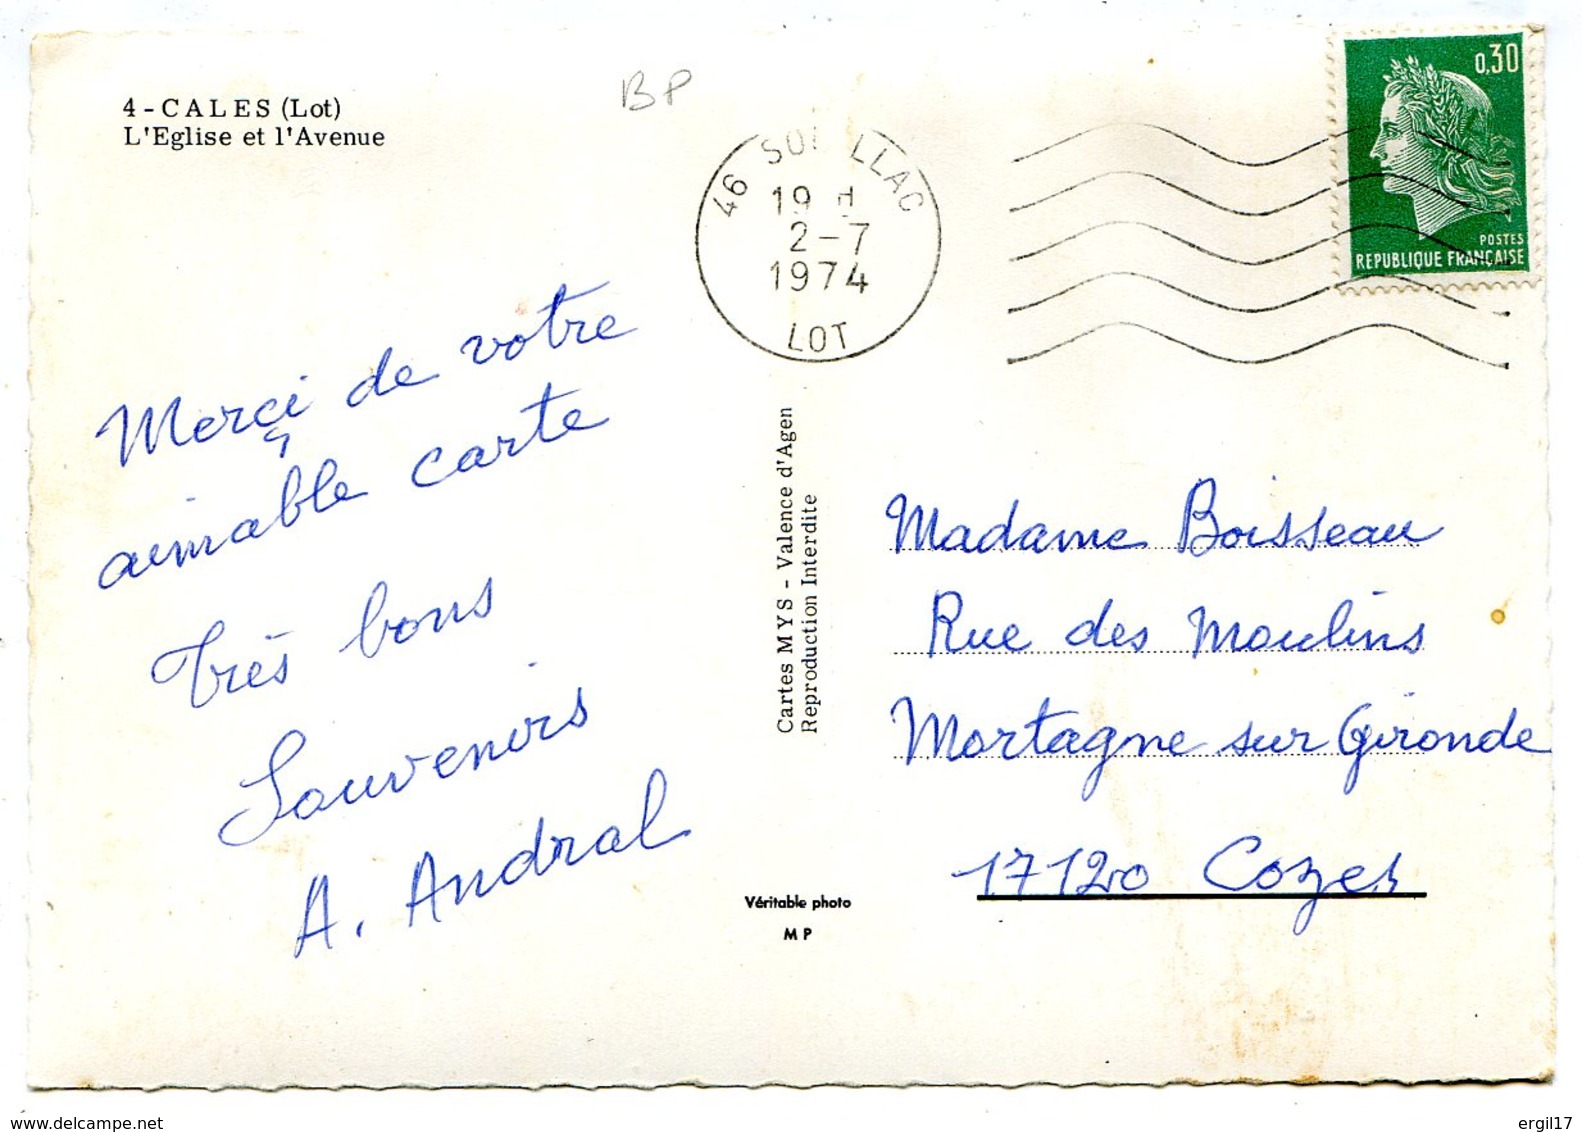 4 - CALES (Lot)
L'Eglise et l'Avenue
BP
46 SOUILLAC
19 H
2-7
1974
LOT
0,30
POSTES
REPUBLIQUE FRANÇAISE
Merçi de votre
aimable carte
Très bons
Souvenirs
A. Andral
Cartes MYS - Valence d'Agen
Reproduction Interdite
Madame Boisseau
Rue des Moulins
Mortagne sur Gironde
17120 Cozes
Véritable photo
MP
www.delcampe.net
ergil17